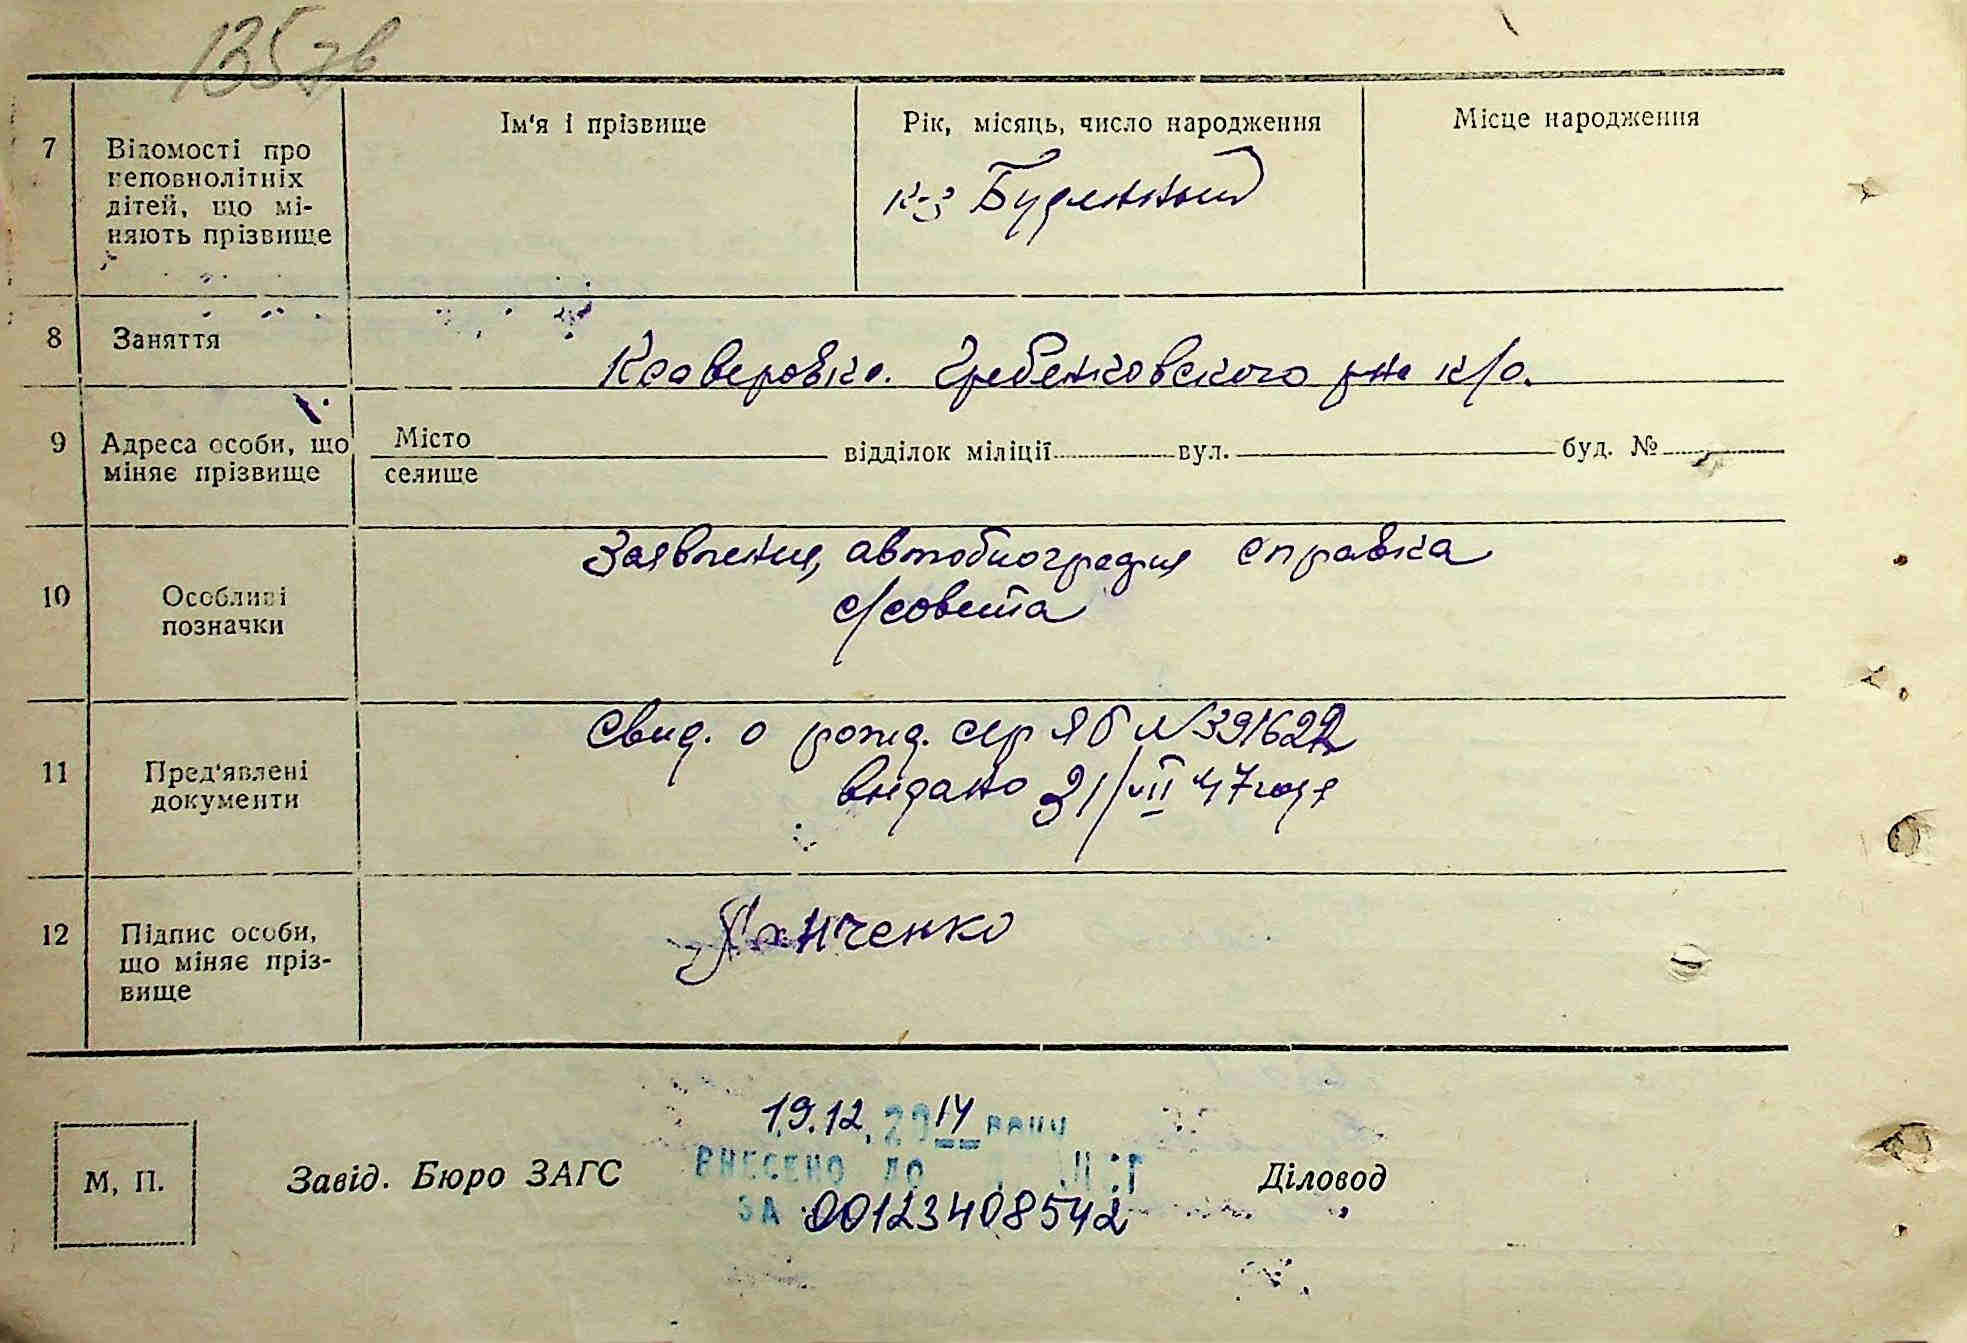 135зв
7
Відомості про
неповнолітніх
дітей, що мі-
няють прізвище
Ім'я і прізвище
Рік, місяць, число народження
к-з Буденный
Місце народження
8
Заняття
Ксаверовка. Гребенковского р-на к/о.
9
Адреса особи, що
міняє прізвище
Місто
селище
відділок міліції
вул.
буд. №
10
Особливі
позначки
Заявления, автобиография справка
с/совета
11
Пред'явлені
документи
Свид. о рожд. сер ЯБ №391622
выдано 31/VII 47 года
12
Підпис особи,
що міняє пріз-
вище
Панченко
19.12.2014 року
ВНЕСЕНО ДО
ЗА 00123408542
М. П.
Завід. Бюро ЗАГС
Діловод